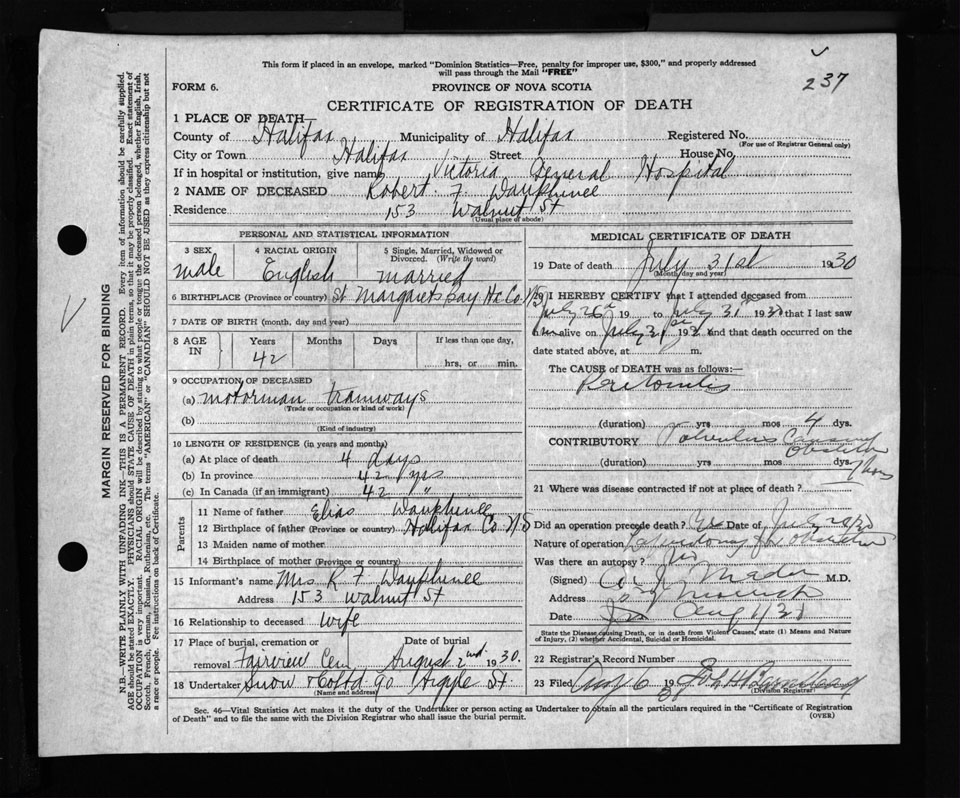 This form if placed in an envelope, marked "Dominion Statistics—Free, penalty for improper use, $300," and properly addressed
will pass through the Mail "FREE"
237
FORM 6.
PROVINCE OF NOVA SCOTIA
CERTIFICATE OF REGISTRATION OF DEATH
MARGIN RESERVED FOR BINDING
N.B.—WRITE PLAINLY WITH UNFADING INK—THIS IS A PERMANENT RECORD. Every item of information should be carefully supplied.
AGE should be stated EXACTLY. PHYSICIANS should STATE CAUSE OF DEATH in plain terms, so that it may be properly classified. Exact statement of
OCCUPATION is very important. RACIAL ORIGIN will be described by stating to what people or tongue the deceased person belonged, whether English, Irish,
Scotch, French, German, Russian, Ruthenian, etc. The terms "AMERICAN" or "CANADIAN" SHOULD NOT BE USED as they express citizenship but not
a race or people. See instructions on back of Certificate.
1 PLACE OF DEATH—
County of Halifax Municipality of Halifax Registered No.
(For use of Registrar General only)
City or Town Halifax Street House No.
If in hospital or institution, give name Victoria General Hospital
2 NAME OF DECEASED Robert F Dauphinee
Residence 153 Walnut St
(Usual place of abode)
PERSONAL AND STATISTICAL INFORMATION
3 SEX male
4 RACIAL ORIGIN English
5 Single, Married, Widowed or Divorced. (Write the word) married
6 BIRTHPLACE (Province or country) St Margarets Bay Hx Co. NS
7 DATE OF BIRTH (month, day and year)
8 AGE IN Years 42 Months Days If less than one day,
hrs. or min.
9 OCCUPATION OF DECEASED
(a) motorman tramways
(Trade or occupation or kind of work)
(b)
(Kind of industry)
10 LENGTH OF RESIDENCE (in years and months)
(a) At place of death 4 days
(b) In province 42 yrs
(c) In Canada (if an immigrant) 42 "
Parents
11 Name of father Elias Dauphinee
12 Birthplace of father (Province or country) Halifax Co N S
13 Maiden name of mother
14 Birthplace of mother (Province or country)
15 Informant's name Mrs R F Dauphinee
Address 153 Walnut St
16 Relationship to deceased wife
17 Place of burial, cremation or removal Fairview Cem Date of burial August 2nd 1930.
18 Undertaker Snow & Co Ltd 90 Argyle St
(Name and address)
MEDICAL CERTIFICATE OF DEATH
19 Date of death July 31st 1930
(Month, day and year)
20 I HEREBY CERTIFY that I attended deceased from
July 26 19 to July 31 1930 that I last saw
him alive on July 31 19 and that death occurred on
date stated above, at m.
The CAUSE of DEATH was as follows:—
Peritonitis
(duration) yrs mos 4 dys.
CONTRIBUTORY Volvulus Causing
Obstetn
(duration) yrs mos dys.
21 Where was disease contracted if not at place of death?
Did an operation precede death? Yes Date of July 28/30
Nature of operation
Was there an autopsy?
(Signed) Mader M.D.
Address
Date Aug 1/30
State the Disease causing Death, or in death from Violent Causes, state (1) Means and Nature
of Injury, (2) whether Accidental, Suicidal or Homicidal.
22 Registrar's Record Number
23 Filed Aug 6 19 John H
(Division Registrar)
Sec. 46—Vital Statistics Act makes it the duty of the Undertaker or person acting as Undertaker to obtain all the particulars required in the "Certificate of Registration
of Death" and to file the same with the Division Registrar who shall issue the burial permit.
(OVER)